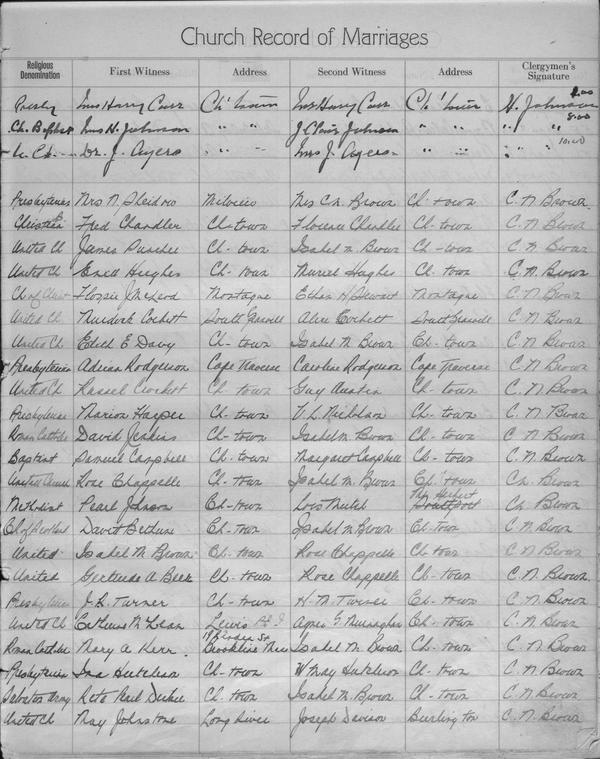 Church Record of Marriages
Religious Denomination First Witness Address Second Witness Address Clergymen's Signature
Presby Mrs Harry Carr Ch'town Mrs Harry Carr Ch'town H. Johnson 8.00
Ch. Baptist Mrs H. Johnson " " J Johnson " " " " 8.00
U. Ch. Dr. J. Ayers " " Mrs J. Ayers " " " " 10.00
Presbyterian Mrs N, Mrs C.N. Brown Ch'town C. N Brown
Christian Fred Chandler Ch-town Florence Chandler Ch-town C. N Brown
United Ch James Ch-town Isabel M. Brown Ch-town C N Brown
United Ch Hughes Ch-town Muriel Hughes Ch-town C. N. Brown
Ch of Christ Flossie J McLeod Montague H Stewart Montague C. N. Brown
United Ch Murdock Corbett Alice Corbett C. N Brown
United Ch Edith E Davy Ch-town Isabel M Brown Ch-town C. N Brown
Presbyterian Adrian Rodgerson Cape Traverse Caroline Rodgerson Cape Traverse C. N Brown
United Ch Russel Crockett Ch-town Guy Austin Ch-town C. N. Brown
Presbyterian Marion Harper Ch-town Ch-town C. N Brown
Roman Catholic David Jenkins Ch-town Isabel M. Brown Ch-town C N. Brown
Baptist Samuel Campbell Ch-town Margaret Campbell Ch-town C. N. Brown
United Rose Chappelle Ch-town Isabel M. Brown Ch-town C.N. Brown
Methodist Pearl Johnson Ch-town Lois C.N Brown
Ch of Scotland David Bethune Ch-town Isabel M. Brown Ch-town C. N Brown
United Isabel M. Brown Ch-town Rose Chappelle Ch town C. N Brown
United Gertrude A Beer Ch-town Rose Chappelle Ch-town C. N Brown
Presbyterian J. R. Turner Ch-town H. M. Turner Ch-town C. N. Brown
United Ch Lewis Agnes Ch-town C. N. Brown
Roman Catholic Mary A. Kerr Brookline Mass Isabel M. Brown Ch-town C. N. Brown
Presbyterian Ina Hutchison Ch-town W May Hutchison Ch-town C. N. Brown
Salvation Army Reta Pearl Ch. town Isabel M. Brown Ch-town C. N. Brown
United Ch May Johnstone Long River Joseph Davison Burlington C. N. Brown